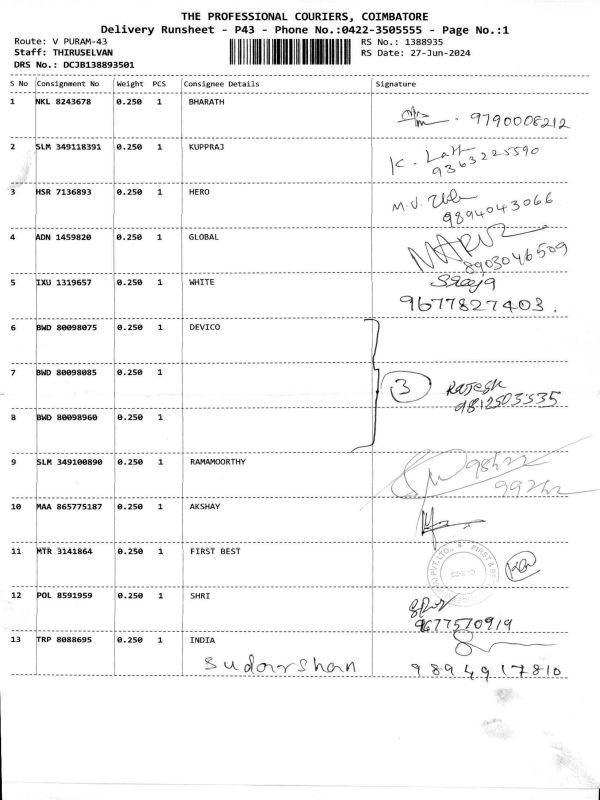 THE PROFESSIONAL COURIERS, COIMBATORE
Delivery Runsheet - P43 - Phone No.:0422-3505555 - Page No.:1
Route: V PURAM-43 RS No.: 1388935
Staff: THIRUSELVAN RS Date: 27-Jun-2024
DRS No.: DCJB138893501
S No Consignment No Weight PCS Consignee Details Signature
1 NKL 8243678 0.250 1 BHARATH
9790008212
2 SLM 349118391 0.250 1 KUPPRAJ
K.
9363225590
3 HSR 7136893 0.250 1 HERO
M.V.
9894043066
4 ADN 1459820 0.250 1 GLOBAL
8903046509
5 IXU 1319657 0.250 1 WHITE
9677827403.
6 BWD 80098075 0.250 1 DEVICO
7 BWD 80098085 0.250 1
3 Rajesh
9812503535
8 BWD 80098960 0.250 1
9 SLM 349100890 0.250 1 RAMAMOORTHY
10 MAA 865775187 0.250 1 AKSHAY
11 MTR 3141864 0.250 1 FIRST BEST
12 POL 8591959 0.250 1 SHRI
9677570919
13 TRP 8088695 0.250 1 INDIA
Sudarshan 9894917810